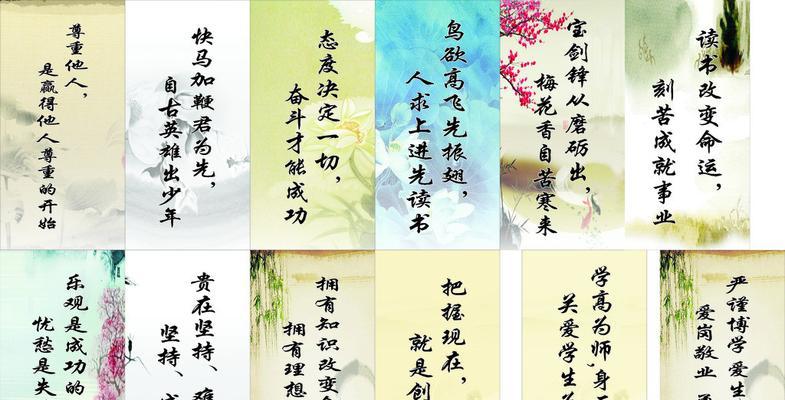 尊重他人，
是赢得他人尊重的开始
快马加鞭君为先，
自古英雄出少年
态度决定一切，
奋斗才能成功
鸟欲高飞先振翅，
人求上进先读书
宝剑锋从磨砺出，
梅花香自苦寒来
读书改变命运，
刻苦成就事业
乐观是成功的
忧愁是失
贵在坚持、难
坚持、成
拥有知识改变
拥有理想
把握现在，
就是创
学高为师，身
关爱学生
严谨博学爱生
爱岗敬业